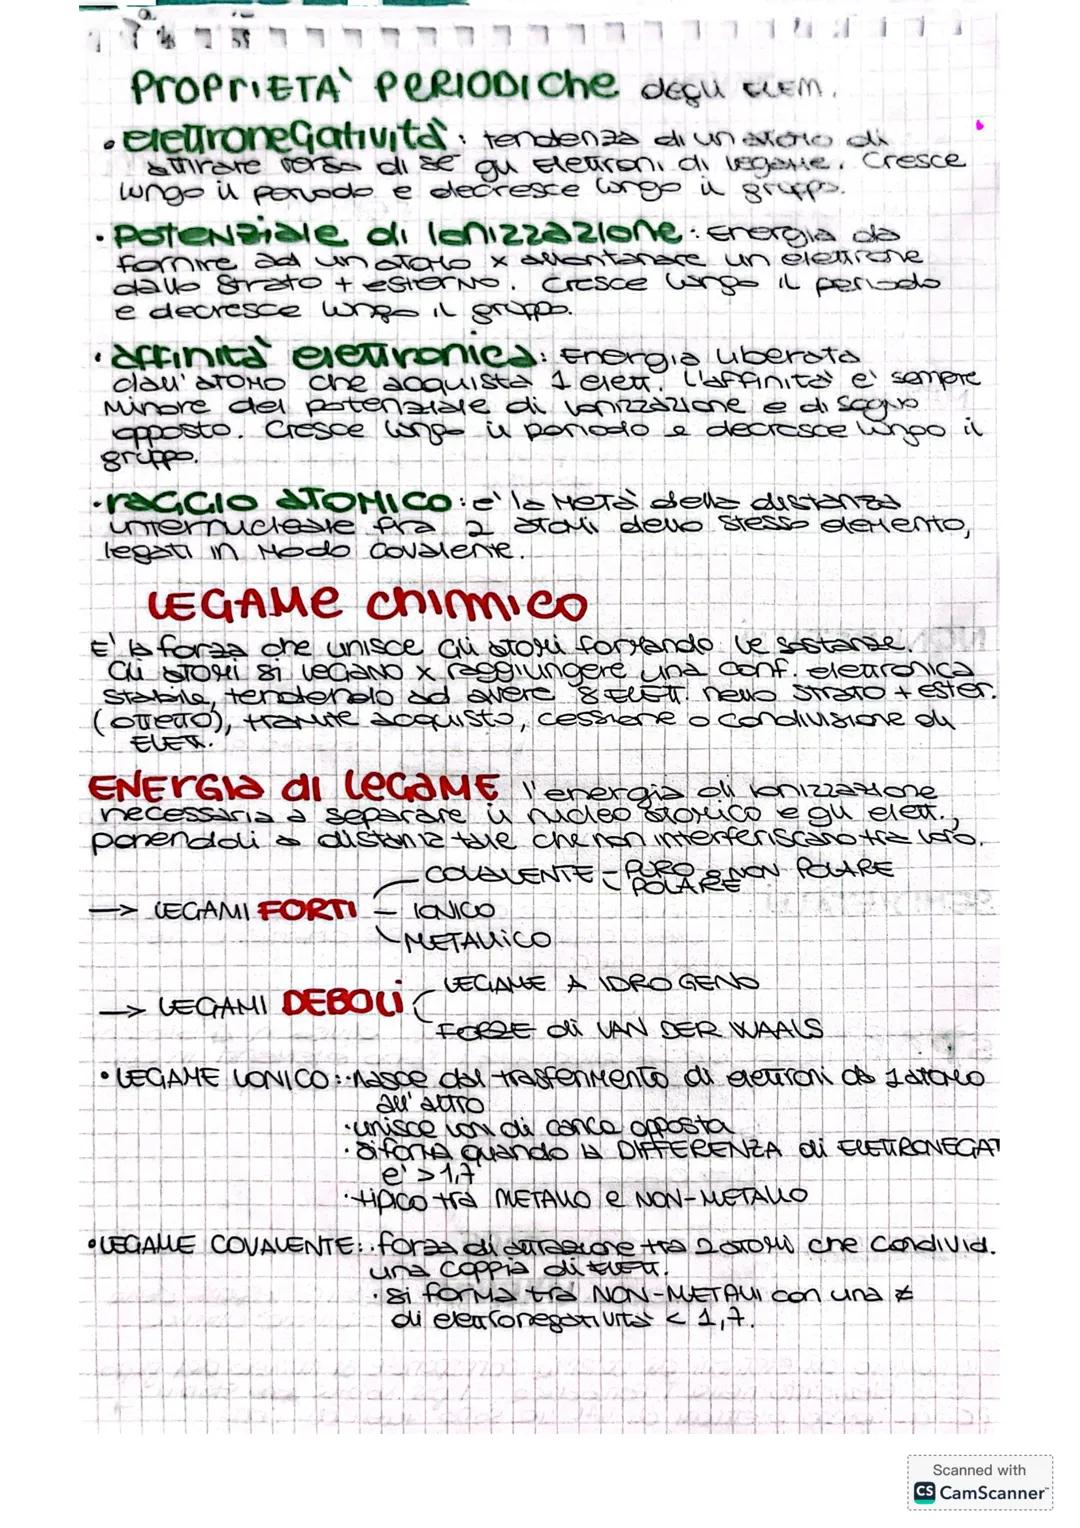 PROPRIETÀ PERIODIChe degli ELEM.
• elettronegatività: tendenza di un atomo di
attirare verso di sé gli elettroni di legame. Cresce
lungo il periodo e decresce lungo il gruppo.
• Potenziale di Ionizzazione: Energia da
fornire ad un atomo x allontanare un elettrone
dallo strato + esterno. Cresce lungo il periodo
e decresce lungo il gruppo.
• affinità elettronica: Energia liberata
dall'atomo che acquista 1 elett. L'affinità e' sempre
minore del potenziale di ionizzazione e di segno
opposto. Cresce lungo il periodo e decresce lungo il
gruppo.
• raggio atomico: e' la metà della distanza
internucleare fra 2 atomi dello stesso elemento,
legati in modo covalente.
LEGAME chimico
E' la forza che unisce gli atomi formando le sostanze.
Gli atomi si legano x raggiungere una conf. elettronica
stabile, tendendo ad avere 8 ELETT. nello strato + ester.
(ottetto), tramite acquisto, cessione o condivisione di
ELETT.
ENERGIA di LEGAME l'energia di ionizzazione
necessaria a separare il nucleo atomico e gli elett.,
ponendoli a distanza tale che non interferiscano tra loro.
COVALENTE - PURO o NON POLARE
POLARE
-> LEGAMI FORTI - IONICO
METALLICO
-> LEGAMI DEBOLI LEGAME A IDROGENO
FORZE di VAN DER WAALS
• LEGAME IONICO: • Nasce dal trasferimento di elettroni da 1 atomo
all'altro
• unisce ioni di carica opposta
• si forma quando la DIFFERENZA di ELETTRONEGAT
e' > 1,7
• tipico tra METALLO e NON-METALLO
• LEGAME COVALENTE: • forza di attrazione tra 2 atomi che condivid.
una coppia di ELETT.
• si forma tra NON-METALLI con una ≠
di elettronegatività < 1,7.
Scanned with
CS CamScanner